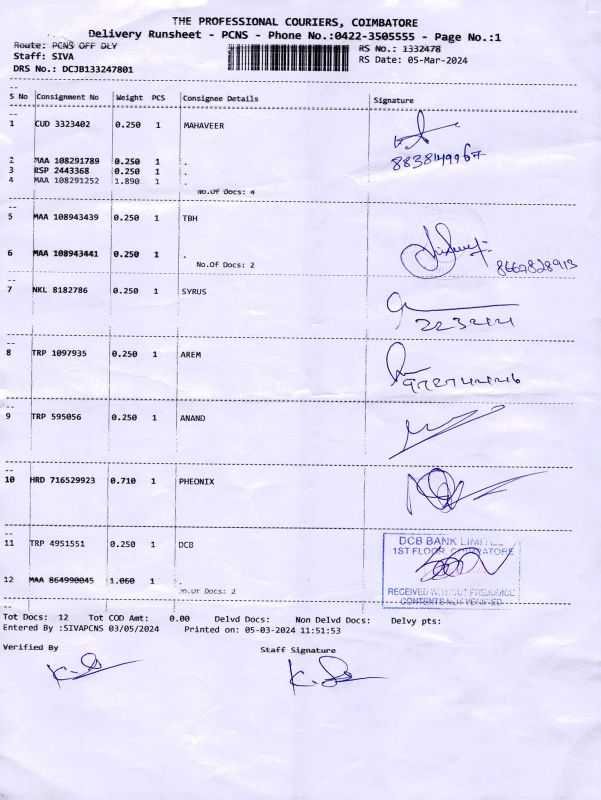 THE PROFESSIONAL COURIERS, COIMBATORE
Delivery Runsheet - PCNS - Phone No.:0422-3505555 - Page No.:1
Route: PCNS OFF DLY RS No.: 1332478
Staff: SIVA RS Date: 05-Mar-2024
DRS No.: DCJB133247801
S No Consignment No Weight PCS Consignee Details Signature
1 CUD 3323402 0.250 1 MAHAVEER
8838149967
2 MAA 108291789 0.250 1 .
3 RSP 2443368 0.250 1 .
4 MAA 108291252 1.890 1 .
No.Of Docs: 4
5 MAA 108943439 0.250 1 TBH
6 MAA 108943441 0.250 1 .
No.Of Docs: 2
8669828913
7 NKL 8182786 0.250 1 SYRUS
8 TRP 1097935 0.250 1 AREM
9 TRP 595056 0.250 1 ANAND
10 HRD 716529923 0.710 1 PHEONIX
11 TRP 4951551 0.250 1 DCB
DCB BANK LIMITED
1ST FLOOR, COIMBATORE
12 MAA 864990045 1.060 1 .
No.Of Docs: 2
RECEIVED WITHOUT PREJUDICE
CONTENTS NOT VERIFIED
Tot Docs: 12 Tot COD Amt: 0.00 Delvd Docs: Non Delvd Docs: Delvy pts:
Entered By :SIVAPCNS 03/05/2024 Printed on: 05-03-2024 11:51:53
Verified By Staff Signature